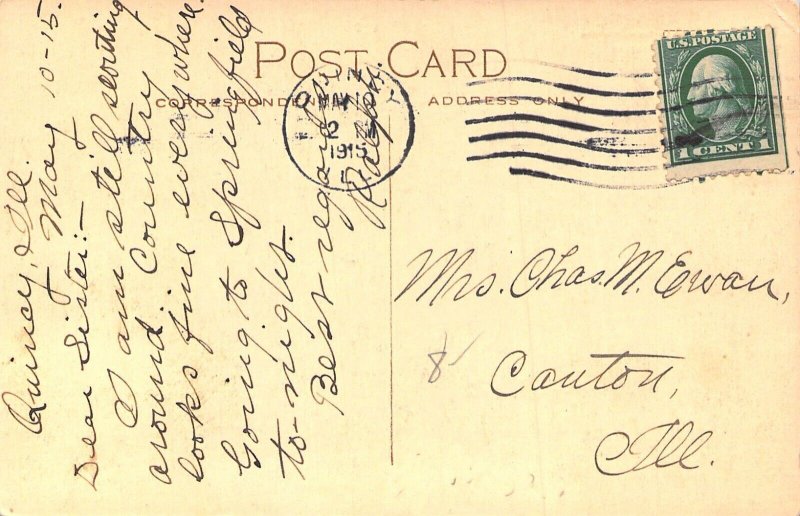 POST CARD
CORRESPONDENCE
ADDRESS ONLY
U.S. POSTAGE
1 CENT 1
1915
Quincy, Ill.
May 10-15.
Dear Sister:-
I am still scouting
around. Country
looks fine everywhere.
Going to Springfield
to-night.
Best regards
Ralph.
Mrs. Chas. M. Ewan,
Canton,
Ill.